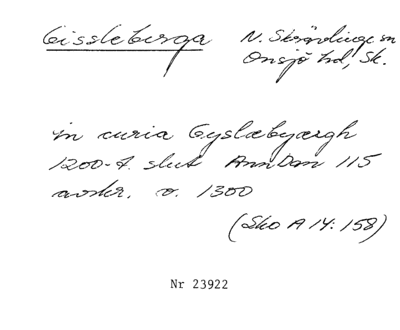 Gissleberga N. Skrävlinge sn
Onsjö hd, Sk.
in curia Gyslæbyærgh
1200-t. slut AnnDan 115
avskr. o. 1300
(Sko A 14: 158)
Nr 23922